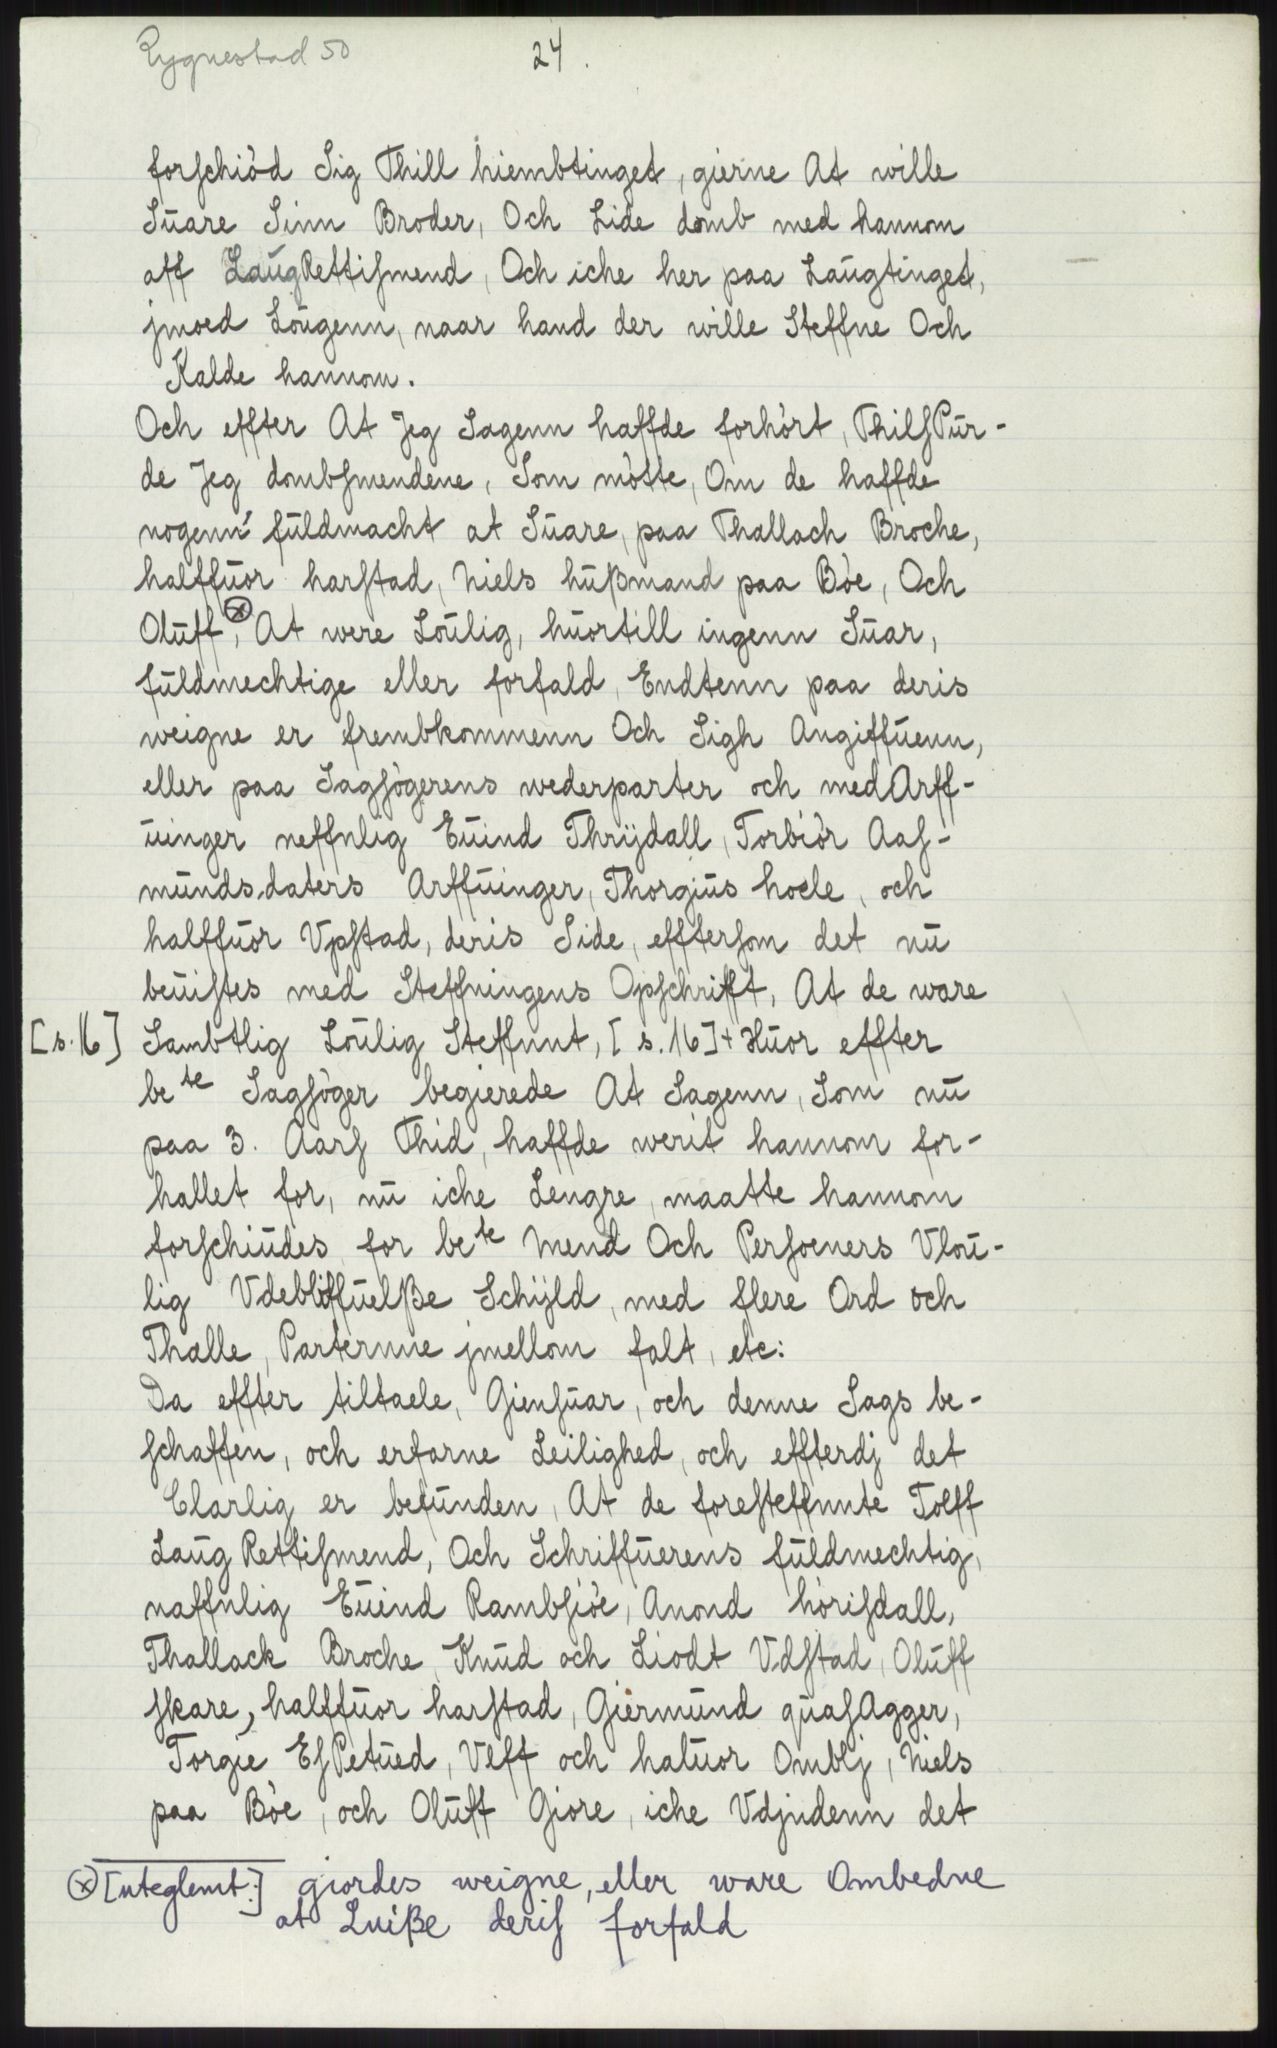 Rygnestad 50
24.
forschiød Sig Thill hiembtinget, gierne At wille
Suare Sinn Broder, Och Lide domb med hannom
aff LaugRettismend, Och iche her paa Laugtinget,
jmoed Lougenn, naar hand der wille Steffne Och
Kalde hannom.
Och effter At Jeg Sagenn haffde forhørt, ThilsPur-
de Jeg dombsmendene, Som møtte, Om de haffde
nogenn fuldmacht at Suare, paa Thallach Broche,
halffuor harstad, Niels hußmand paa Bøe, Och
Oluff, ⓧ At were Loulig, huortill ingenn Suar,
fuldmechtige eller forfald, Endtenn paa deris
weigne er frembkommenn Och Sigh Angiffuenn,
eller paa Sagsøgerens wederparter och medArff-
uinger neffnlig Euind Thrijdall, Torbiør Aas-
mundsdaters Arffuinger, Thorgius hoele, och
halffuor Vpstad, deris Side, efftersom det nu
beuistes med Steffningens Opschrifft, At de ware
[s. 16] Sambtlig Loulig Steffnnt, [s. 16] + Huor effter
be te Sagsøger begierede At Sagenn, Som nu
paa 3. Aars Thid, haffde werit hannom for-
hallet for, nu iche Lengre, maatte hannom
forschiudes for be te Mend Och Persoeners Vlou-
lig Vdebliffuelße Schijld, med flere Ord och
Thalle, Parterнne jmellom falt, etc:
Da effter tiltaele, Giensuar, och denne Sags be-
schaffen, och erfarne Leilighed, och effterdj det
Clarlig er befunden, At de foresteffnnte Tolff
Laug Rettismend, Och Schriffuerens fuldmechtig,
naffnlig Euind Rambsiøe, Anond hørisdall,
Thallack Broche, Knud och Liodt Vdstad, Oluff
skare, halffuor harstad, Giermund quasAgger,
Torgie EsPetued, Vlff och haluor Omblj, Niels
paa Bøe, och Oluff Giore, iche Vdjndenn det
ⓧ [uteglemt:] giordes weigne, eller ware Ombedne
at Luiße deris forfald